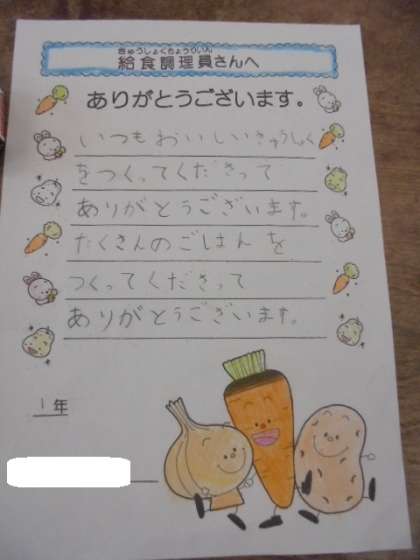 きゅうしょくちょうりいん
給食調理員さんへ
ありがとうございます。
いつもおいしいきゅうしょく
をつくってくださって
ありがとうございます。
たくさんのごはんを
つくってくださって
ありがとうございます。
1年